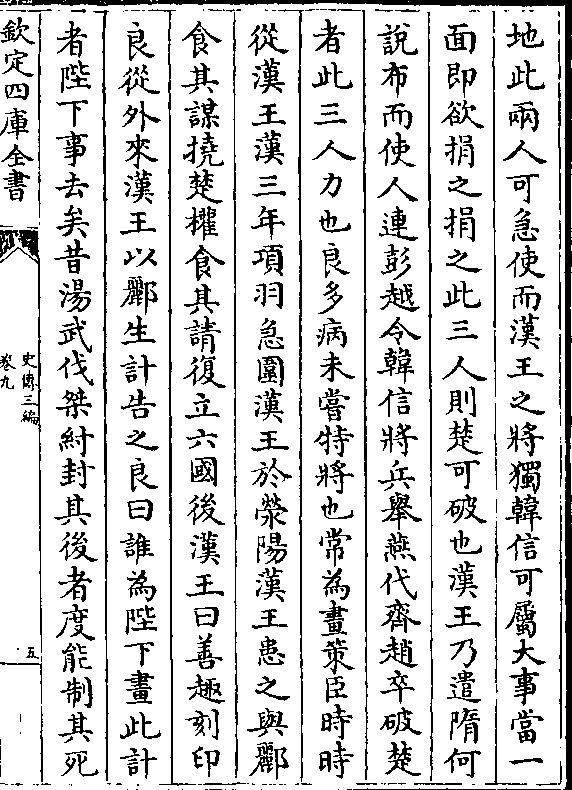 地此兩人可急使而漢王之將獨韓信可屬大事當一
面即欲捐之捐之此三人則楚可破也漢王乃遣隋何
說布而使人連彭越令韓信將兵舉燕代齊趙卒破楚
者此三人力也良多病未嘗特將也常為畫策臣時時
從漢王漢三年項羽急圍漢王於滎陽漢王患之與酈
食其謀撓楚權食其請復立六國後漢王曰善趣刻印
良從外來漢王以酈生計告之良曰誰為陛下畫此計
者陛下事去矣昔湯武伐桀紂封其後者度能制其死
欽定四庫全書
史傳三編
卷九
五